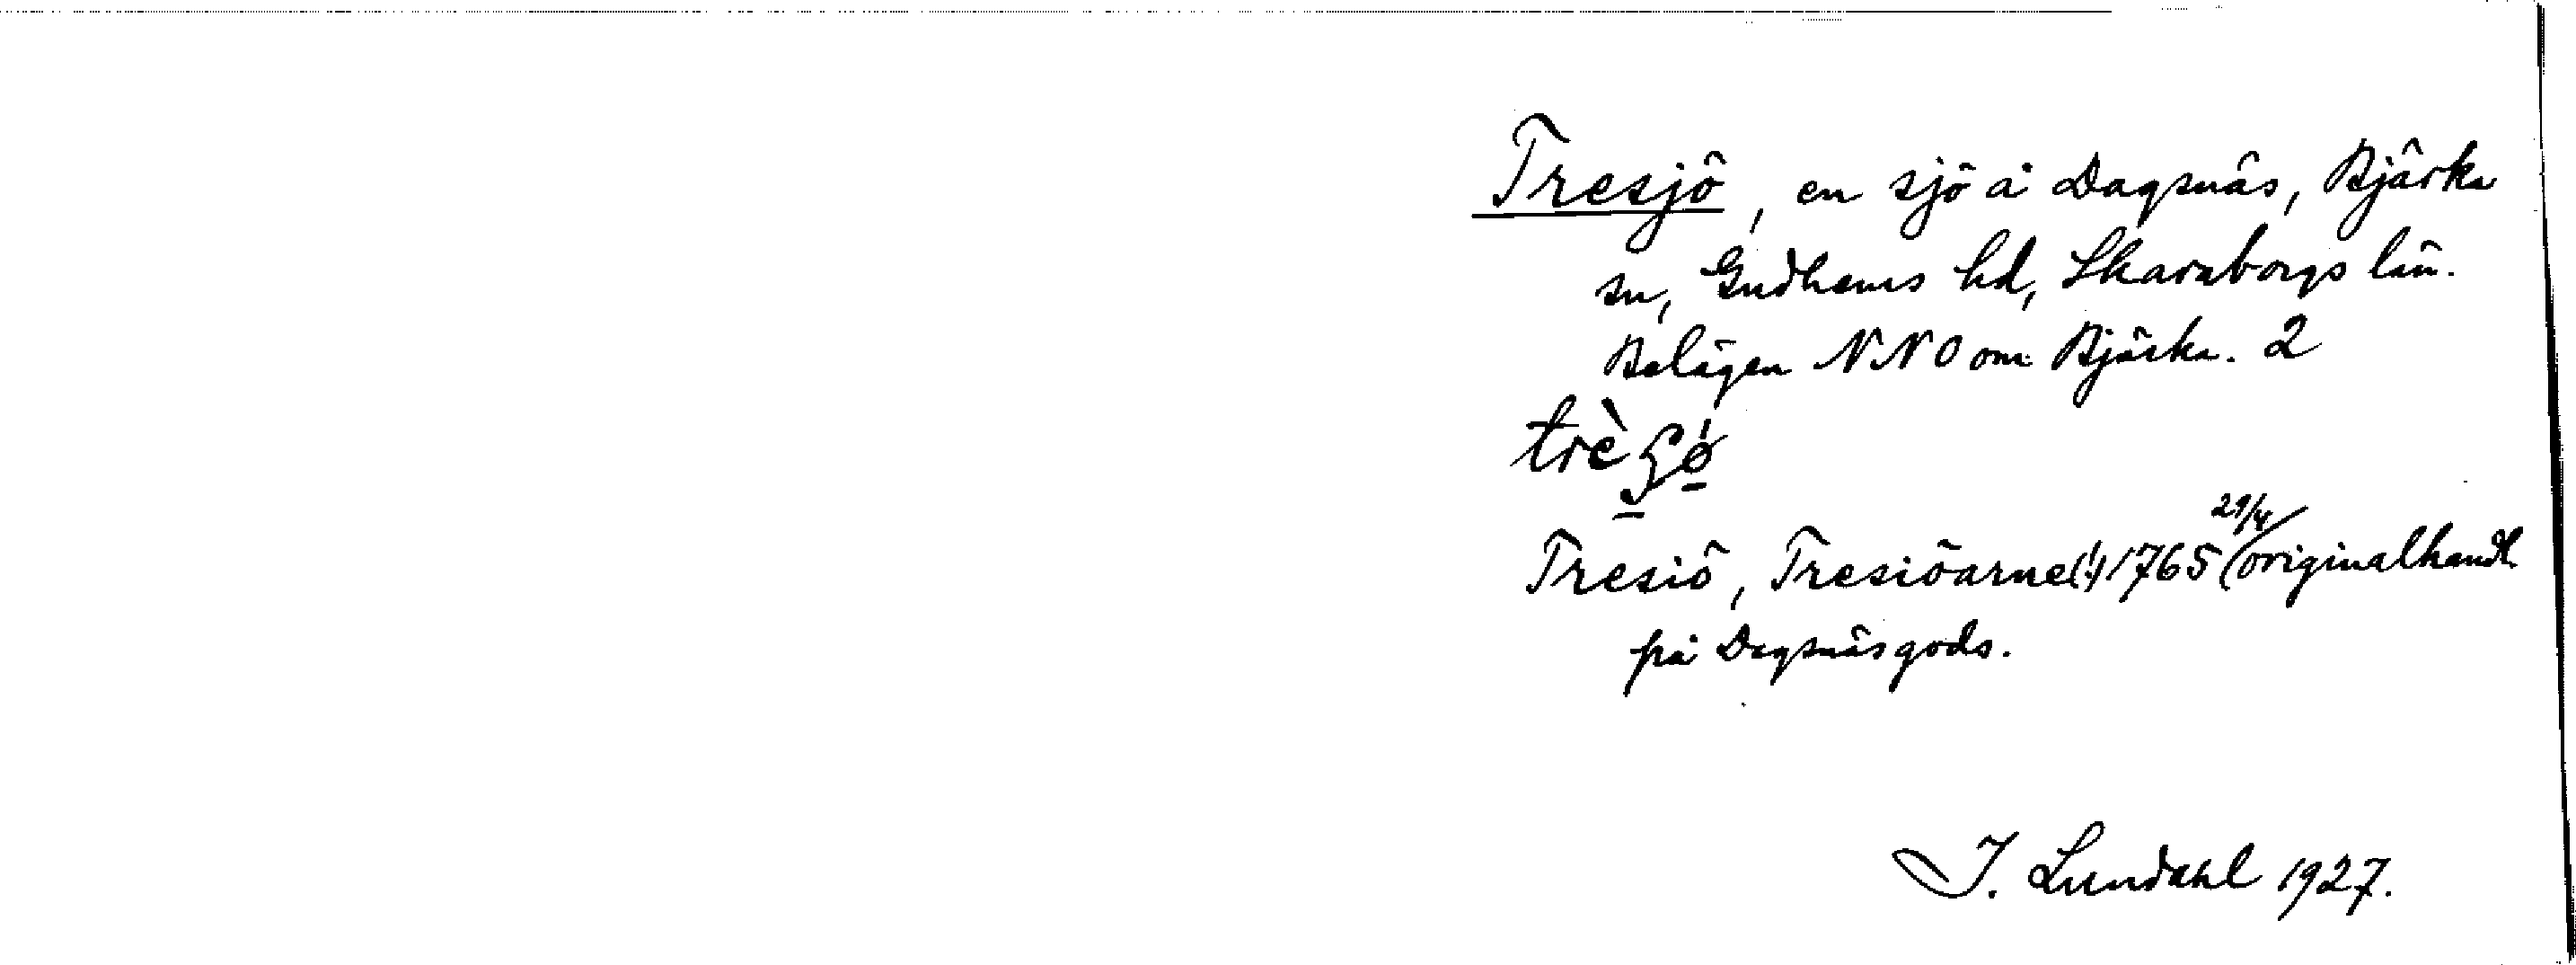 Tresjö, en sjö å Dagsnäs, Bjärka
sn, Gudhems hd, Skaraborgs län.
Belägen NNO om Bjärka. 2
Tresiö, Tresiöarne(!) 1765 29/4 (originalhandl.
på Dagsnäs gods.
I. Lundahl 1927.